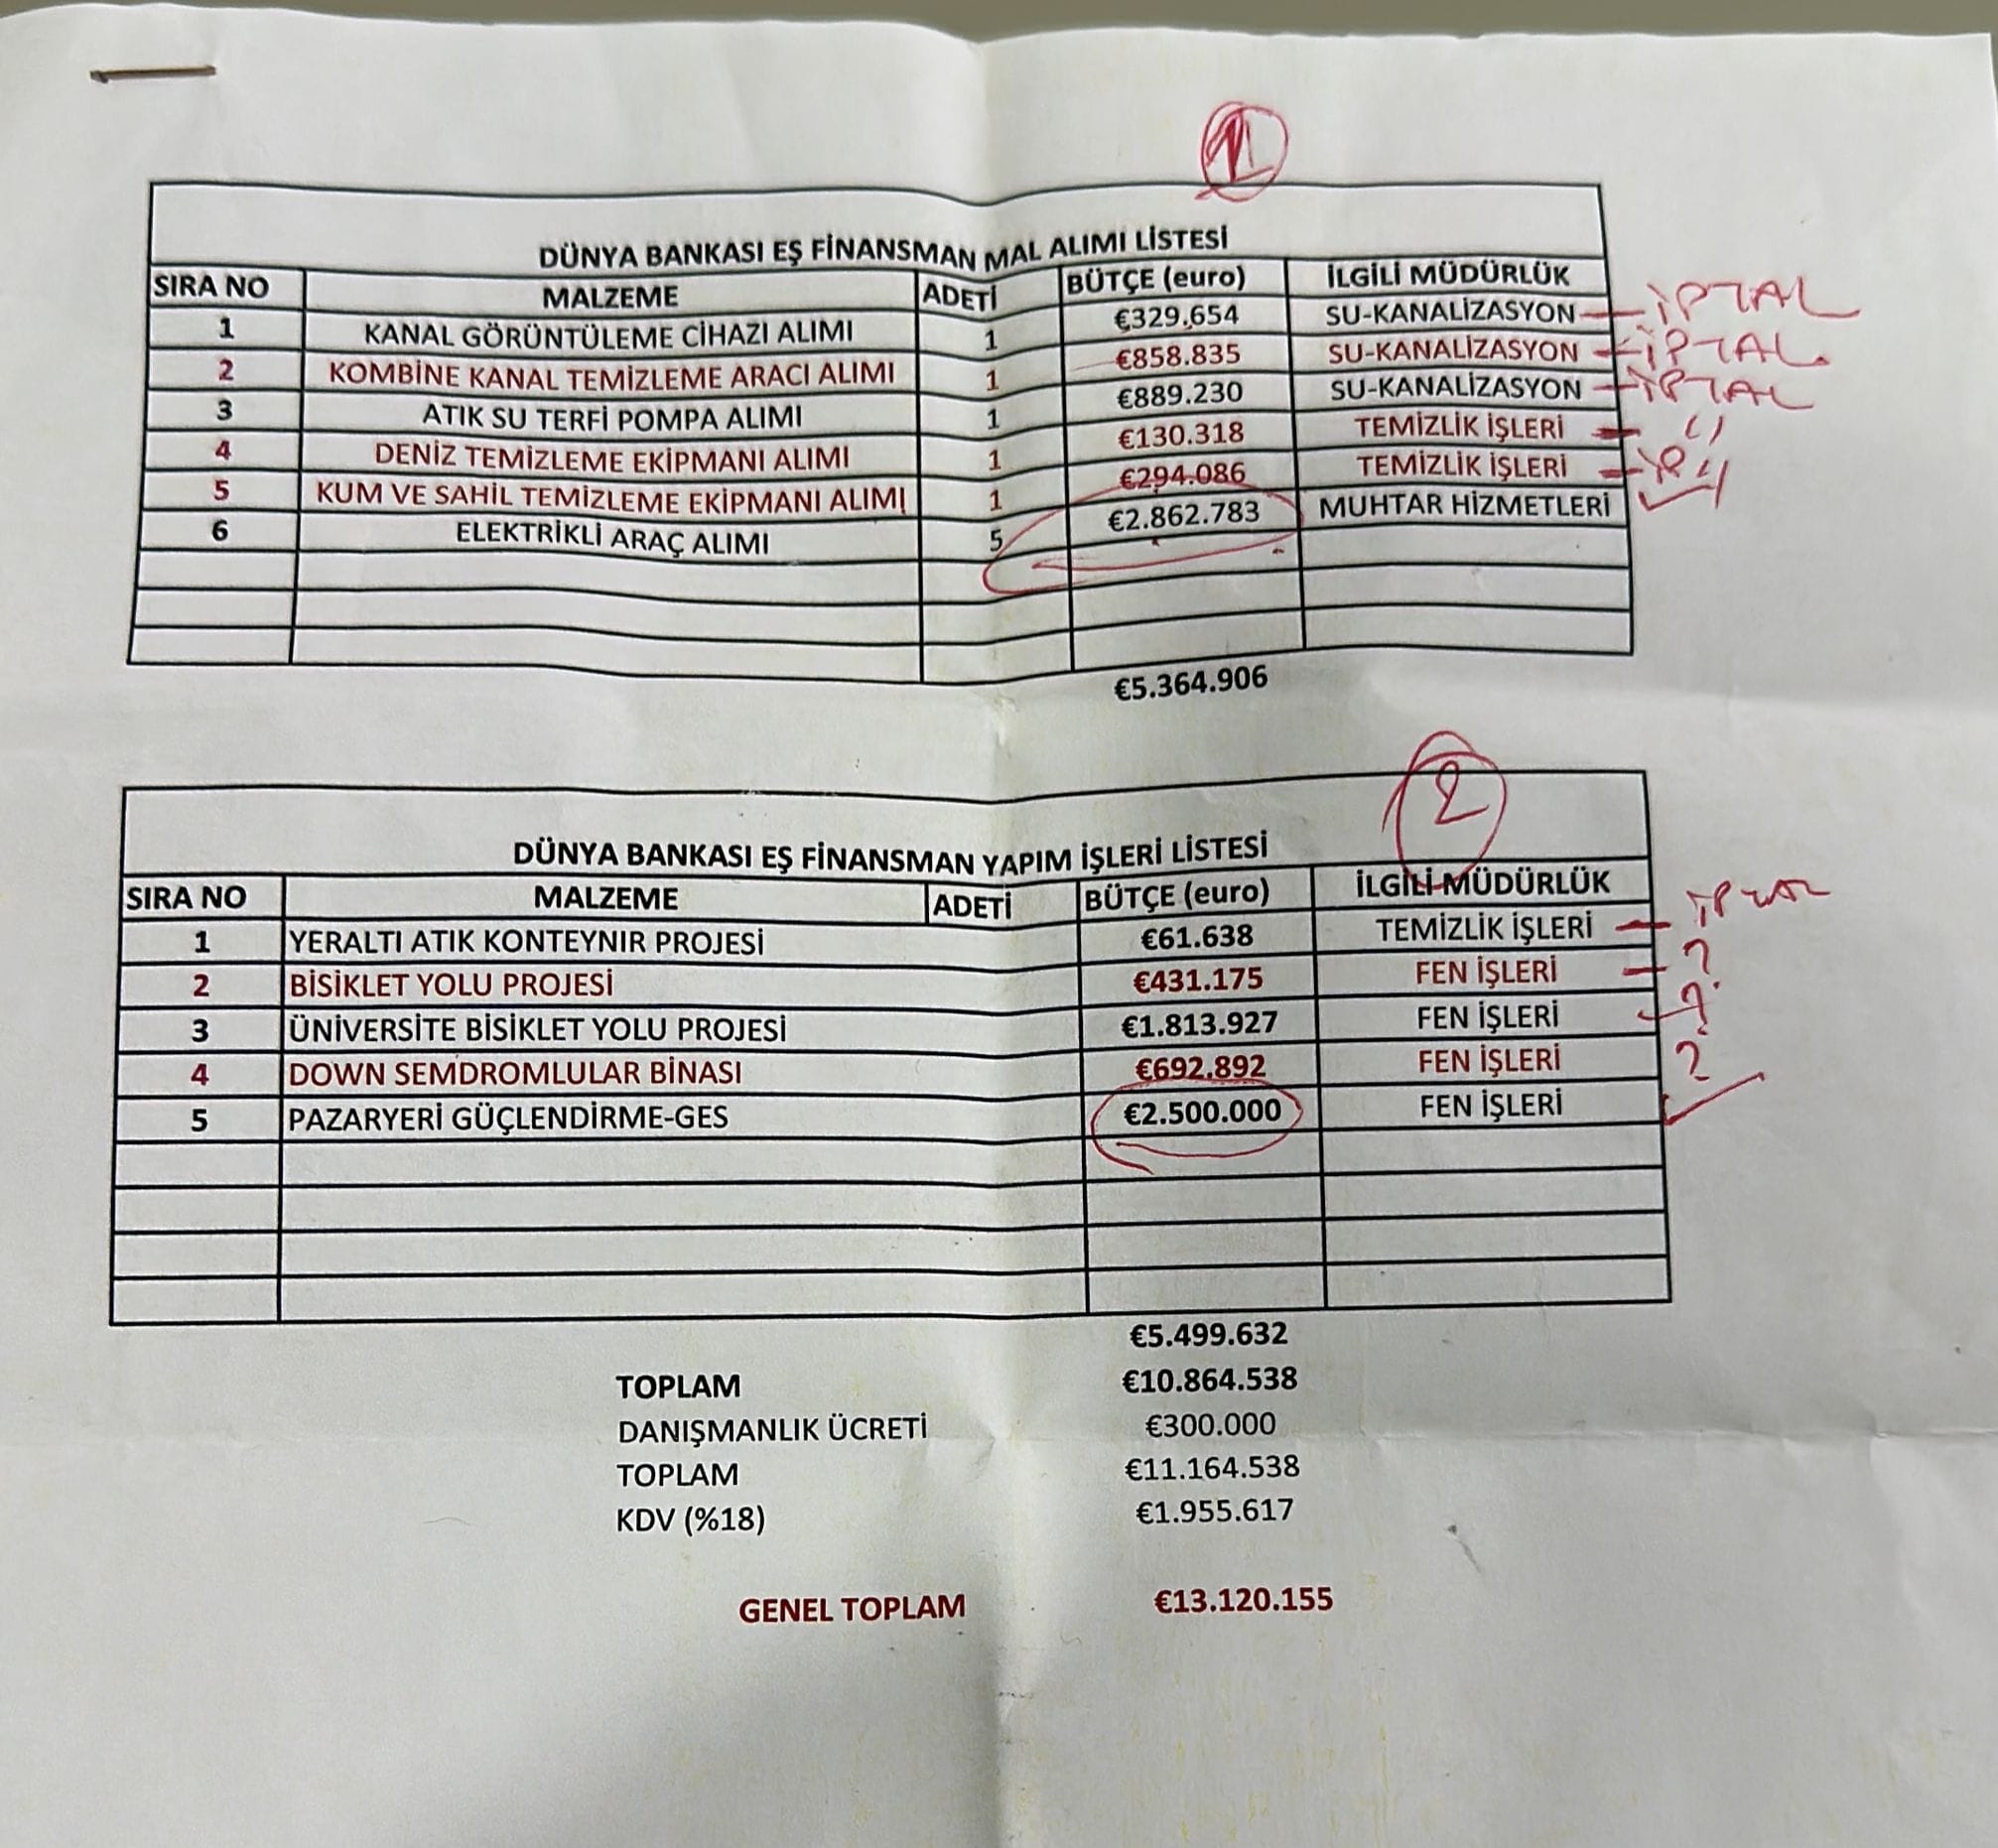 1
DÜNYA BANKASI EŞ FİNANSMAN MAL ALIMI LİSTESİ
SIRA NO MALZEME ADETİ BÜTÇE (euro) İLGİLİ MÜDÜRLÜK
1 KANAL GÖRÜNTÜLEME CİHAZI ALIMI 1 €329.654 SU-KANALİZASYON - İPTAL
2 KOMBİNE KANAL TEMİZLEME ARACI ALIMI 1 €858.835 SU-KANALİZASYON - İPTAL
3 ATIK SU TERFİ POMPA ALIMI 1 €889.230 SU-KANALİZASYON - İPTAL
4 DENİZ TEMİZLEME EKİPMANI ALIMI 1 €130.318 TEMİZLİK İŞLERİ - "
5 KUM VE SAHİL TEMİZLEME EKİPMANI ALIMI 1 €294.086 TEMİZLİK İŞLERİ -
6 ELEKTRİKLİ ARAÇ ALIMI 5 €2.862.783 MUHTAR HİZMETLERİ ✓
€5.364.906
2
DÜNYA BANKASI EŞ FİNANSMAN YAPIM İŞLERİ LİSTESİ
SIRA NO MALZEME ADETİ BÜTÇE (euro) İLGİLİ MÜDÜRLÜK
1 YERALTI ATIK KONTEYNIR PROJESİ €61.638 TEMİZLİK İŞLERİ - İPTAL
2 BİSİKLET YOLU PROJESİ €431.175 FEN İŞLERİ - ?
3 ÜNİVERSİTE BİSİKLET YOLU PROJESİ €1.813.927 FEN İŞLERİ - ?
4 DOWN SEMDROMLULAR BİNASI €692.892 FEN İŞLERİ ?
5 PAZARYERİ GÜÇLENDİRME-GES €2.500.000 FEN İŞLERİ ✓
€5.499.632
TOPLAM €10.864.538
DANIŞMANLIK ÜCRETİ €300.000
TOPLAM €11.164.538
KDV (%18) €1.955.617
GENEL TOPLAM €13.120.155